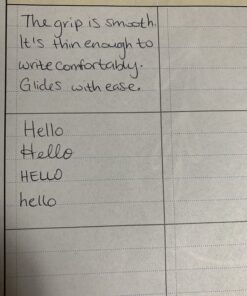 The grip is smooth.
It's thin enough to
write comfortably.
Glides with ease.
Hello
Hello
HELLO
hello